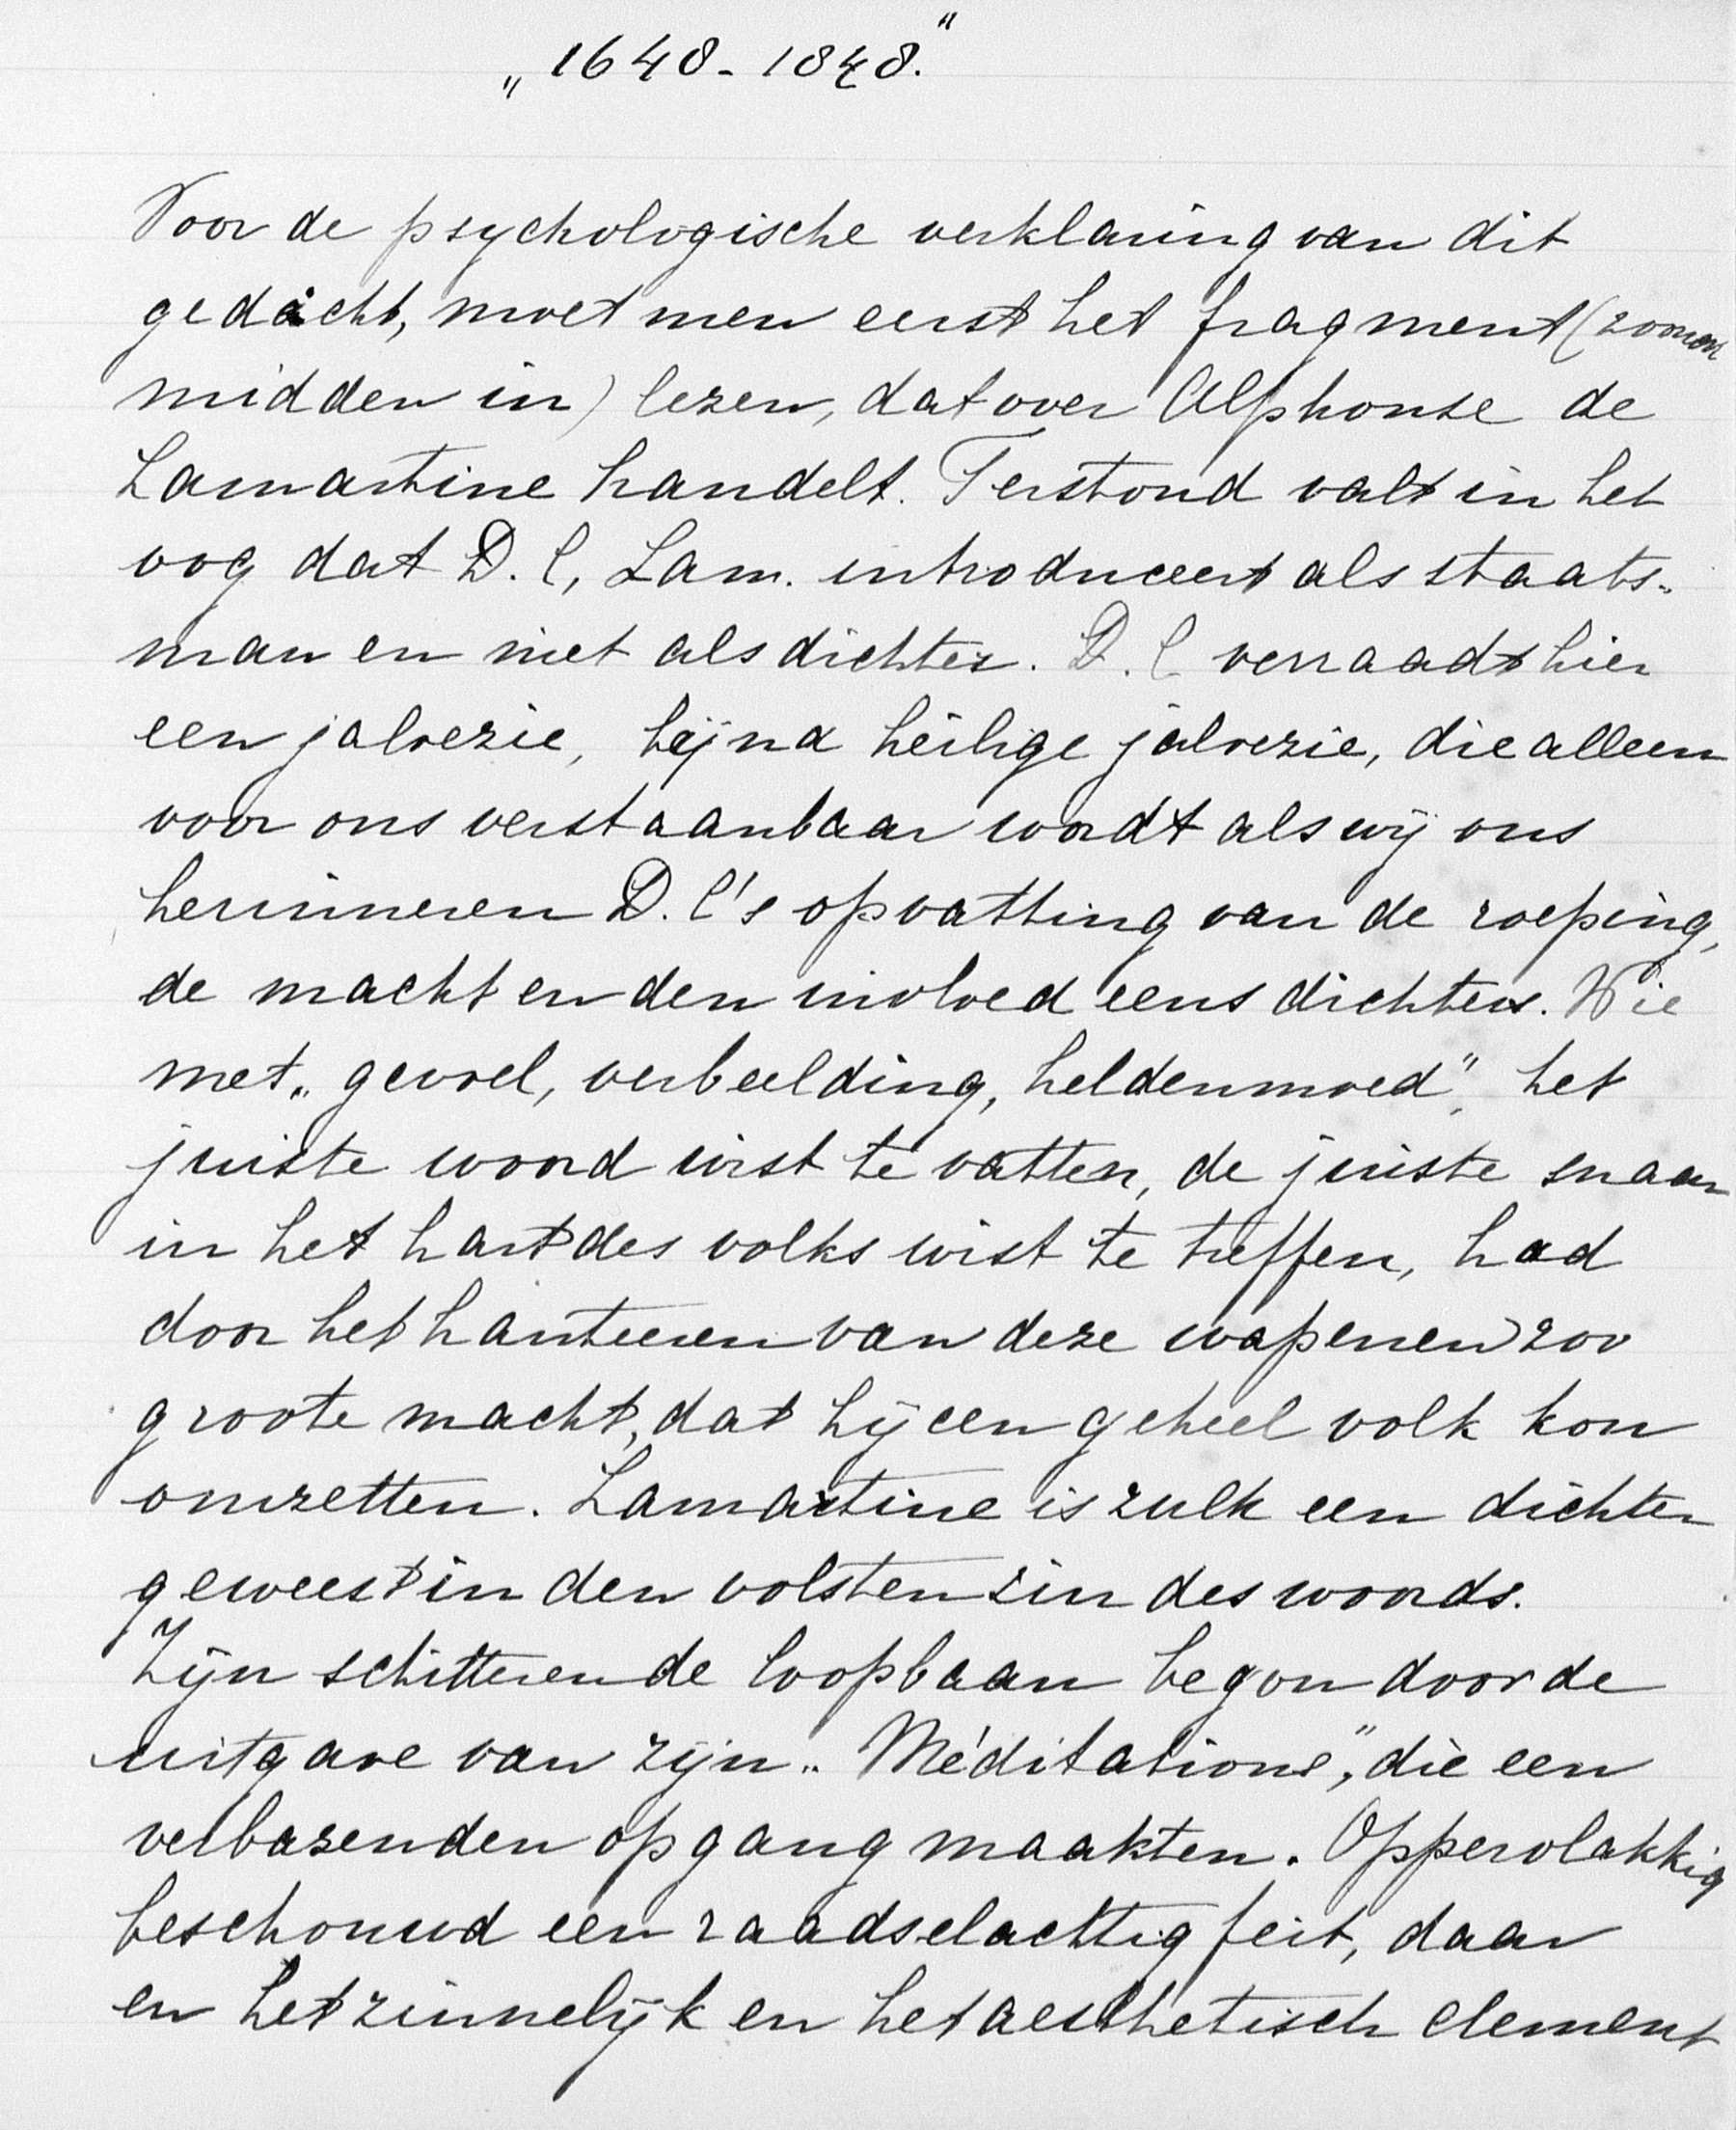 „1648-1848."
Voor de psychologische verklaring van dit
gedicht, moet men eerst het fragment (zoomen
midden in) lezen, dat over Alphonse de
Lamartine handelt. Terstond valt in het
oog dat D. C, Lam. introduceert als staats-
man en niet als dichter. D. C verraadt hier
een jaloezie, bijna heilige jaloezie, die alleen
voor ons verstaanbaar wordt als wij ons
herinneren D. C's opvatting van de roeping,
de macht en den invloed eens dichters. Wie
met „gevoel, verbeelding, heldenmoed", het
juiste woord wist te vatten, de juiste snaar
in het hart des volks wist te treffen, had
door het hanteeren van deze wapenen zoo
groote macht, dat hij een geheel volk kon
omzetten. Lamartine is zulk een dichter
geweest in den volsten zin des woords.
Zijn schitterende loopbaan begon door de
uitgave van zijn „Méditations", die een
verbazenden opgang maakten. Oppervlakkig
beschouwd een raadselachtig feit, daar
en het zinnelijk en het aesthetisch element